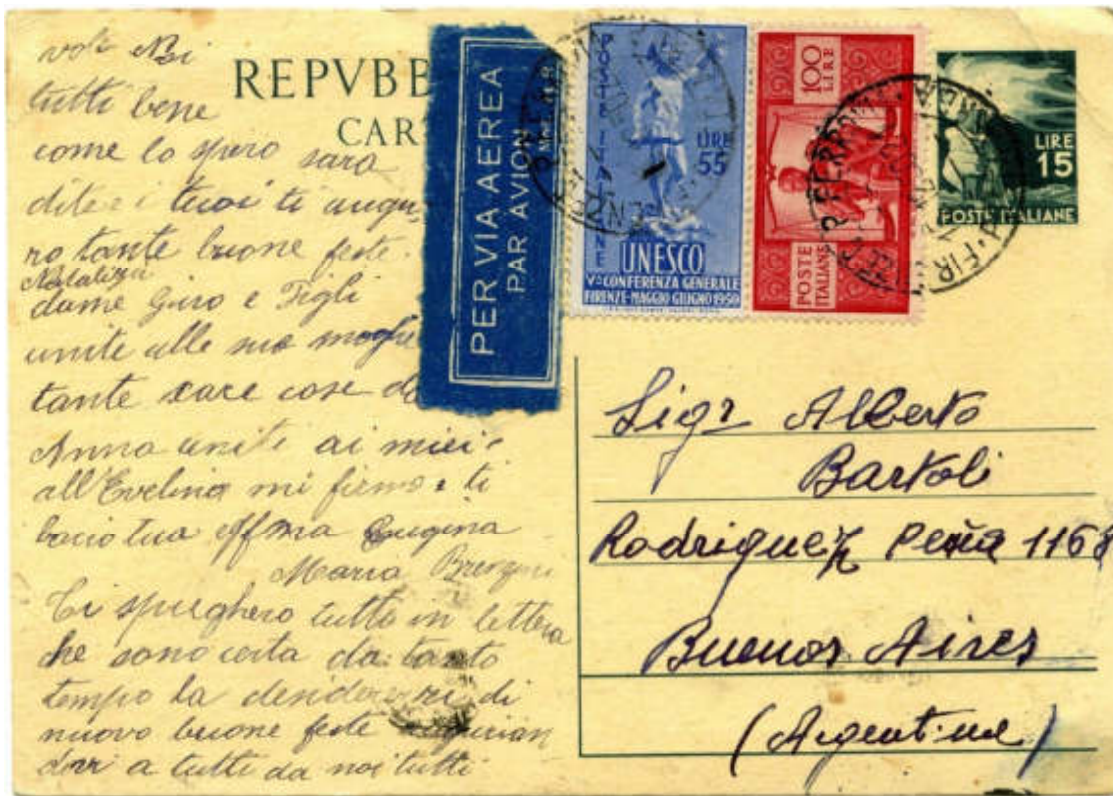 volt Noi
tutti bene
come lo spero sara
di tei i tuoi ti augu
ro tante buone feste
Natalizie
dame Giro e Figli
unite alle sua moglie
tante care cose da
Anna uniti ai miei
all'Evelina mi firmo ti
bacio tua affma Cugina
Maria
Ti spieghero tutto in lettera
che sono certa da tanto
tempo la desidereresti di
nuovo buone feste
dovi a tutti da noi tutti
REPVBB
CAR
PER VIA AEREA
PAR AVION
POSTE ITALIANE
LIRE
55
UNESCO
Vª CONFERENZA GENERALE
FIRENZE-MAGGIO GIUGNO 1950
100
LIRE
POSTE
ITALIANE
LIRE
15
POSTE ITALIANE
Sigr Alberto
Bartoli
Rodriguez Peña 1168
Buenos Aires
(Argentine)